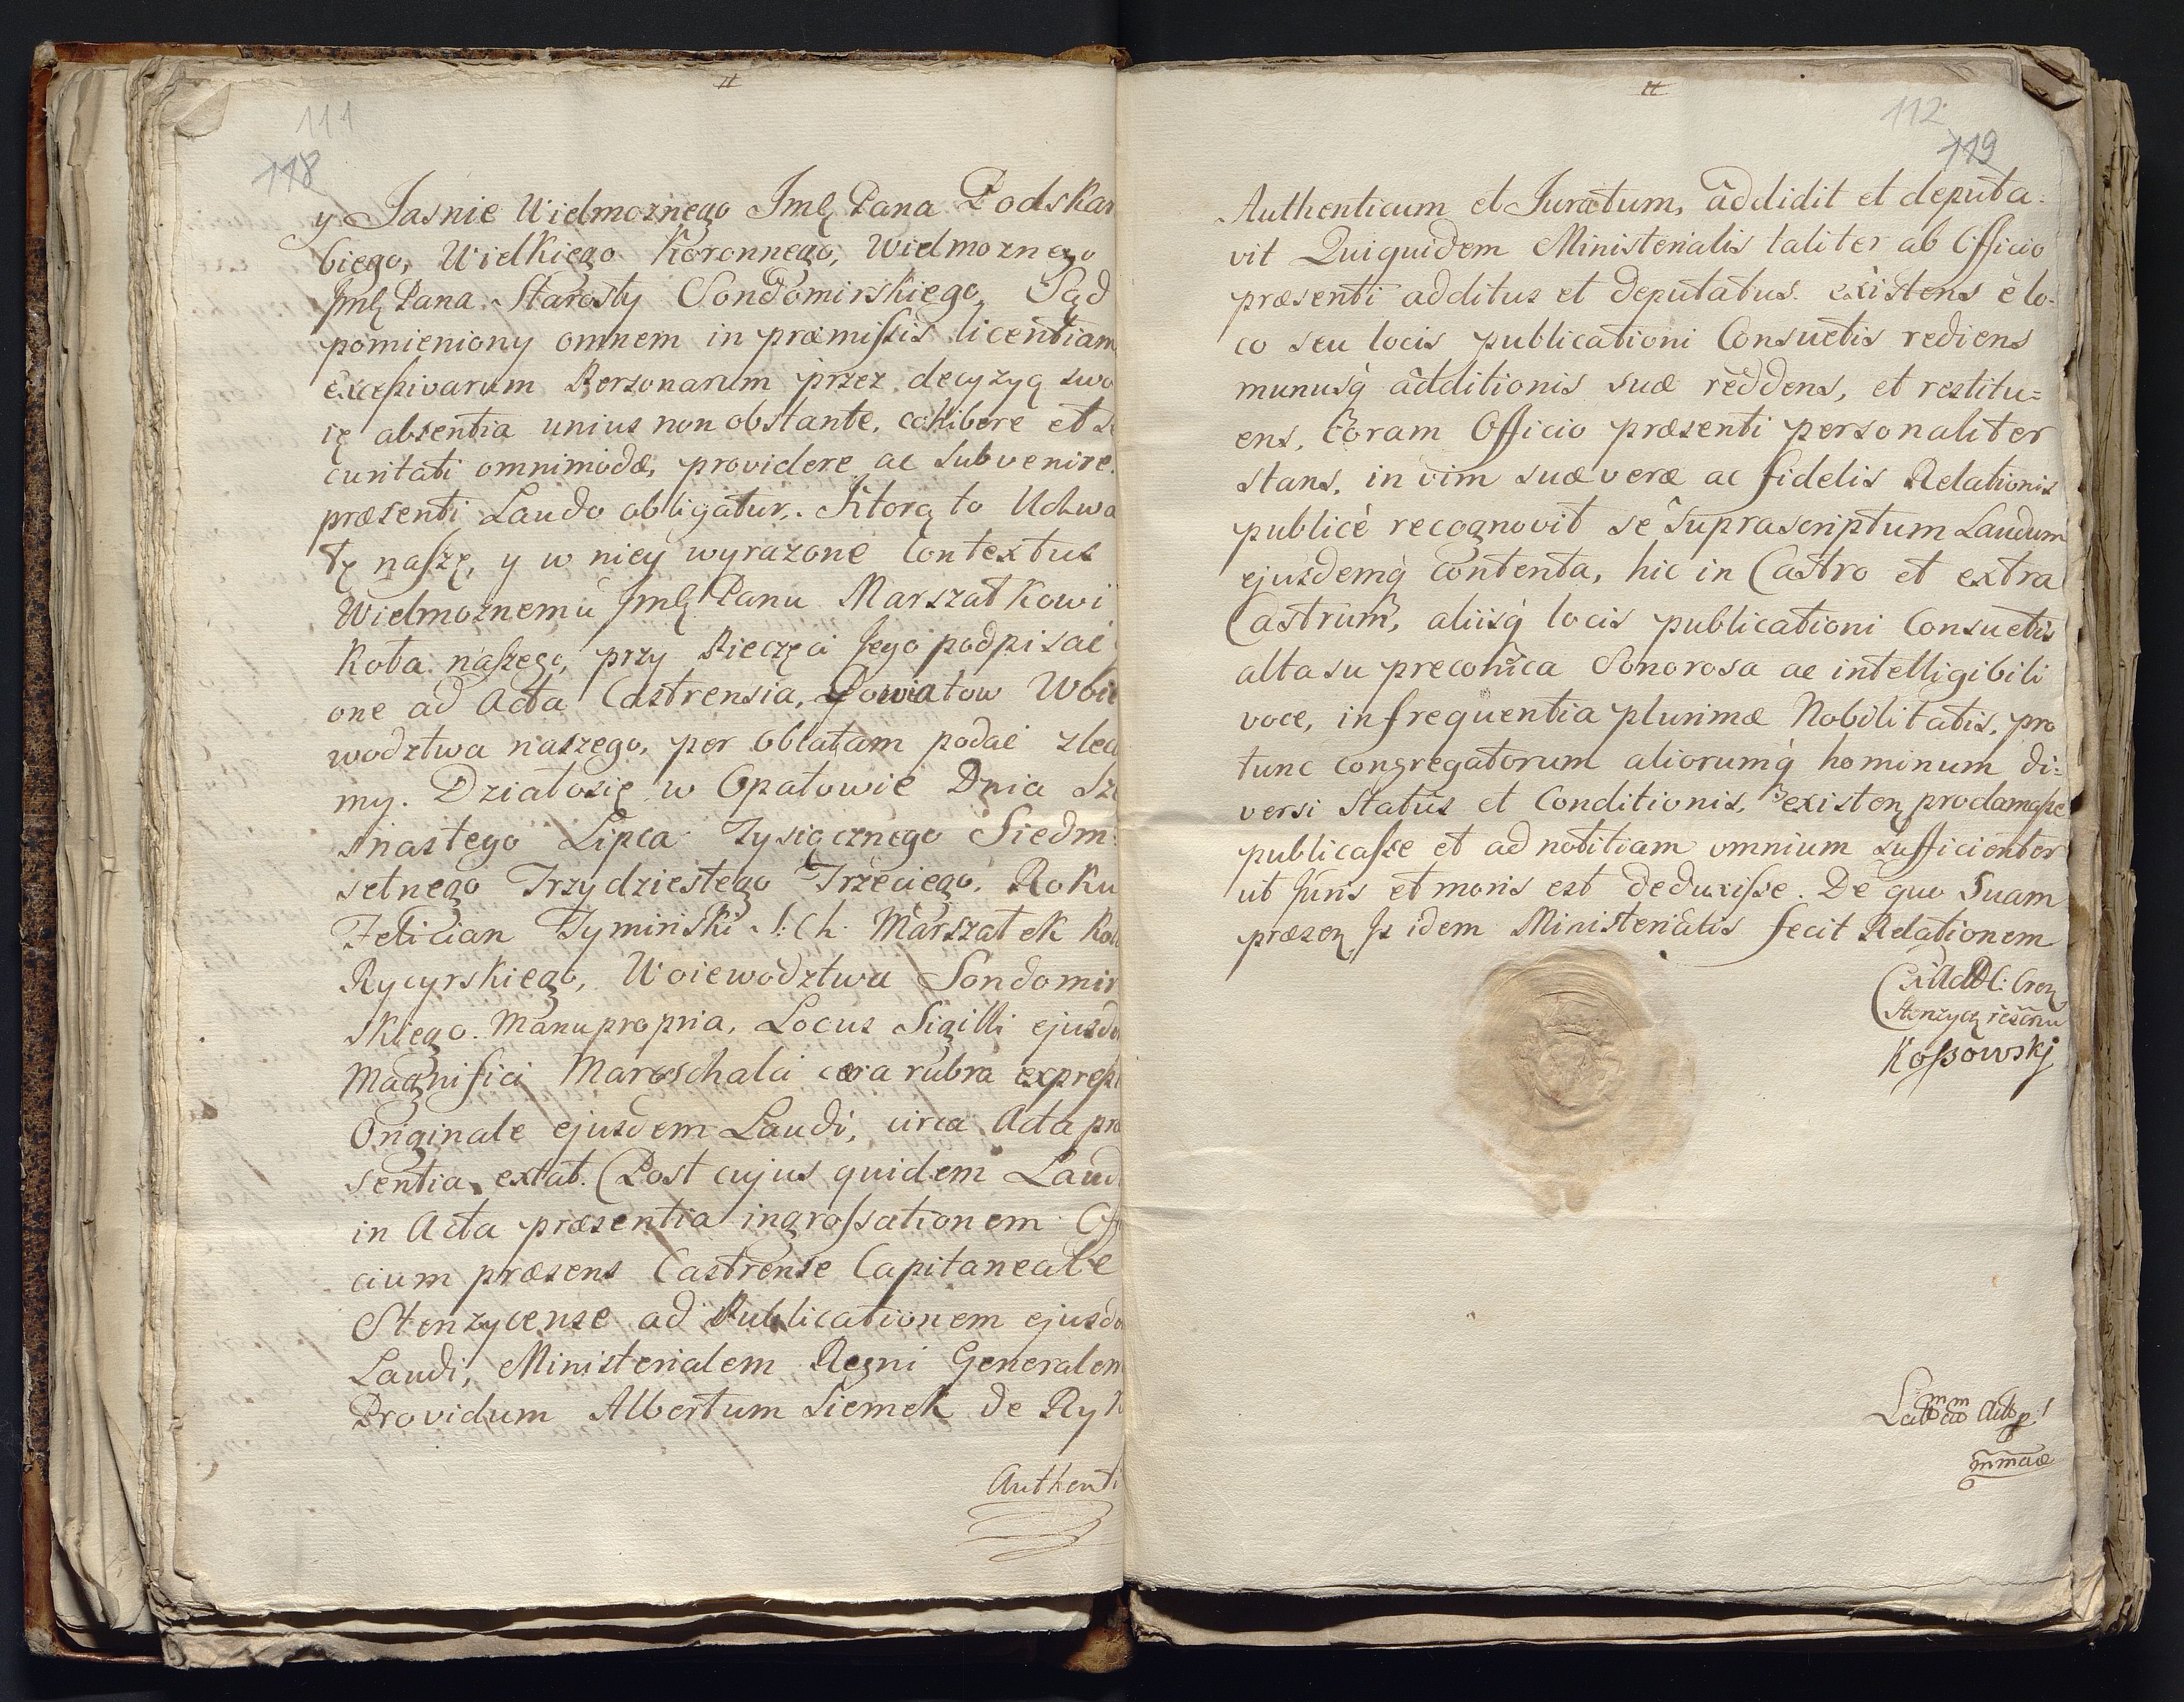 111
118
y Jasnie Wielmoznego Jmę Pana Podskar
biego, Wielkiego Koronnego, Wielmoznego
Jmę Pana Starosty Sondomirskiego, Sąd
pomieniony omnem in præmissis licentiam
excessivarum Personarum przez decyzyą swo
ię absentia unius non obstante, cohibere et se
curitati omnimodæ, providere ac subvenire
præsenti Laudo obligatur. Ktorą to Uchwa
łę naszę, y w niey wyrazone Contextus
Wielmoznemu Jmę Panu Marszałkowi
Koła naszego, przy Pieczęci Jego podpisać
one ad Acta Castrensia, Powiatow Woie
wodztwa naszego, per Oblatam podać zleci
my. Działosię w Opatowie Dnia Sze
snastego Lipca Tysiącznego Siedm
setnego Trzydziestego Trzeciego. Roku
Felician Tyminski S: Ch: Marszałek Koła
Rycyrskiego, Woiewodztwa Sondomir
skiego. Manu propria, Locus Sigilli ejusde
Magnifici Mareschalci cera rubra expressi
Originale ejusdem Laudi, circa Acta præ
sentia extat. Post cujus quidem Laudi
in Acta præsentia ingrossationem Offi
cium præsens Castrense Capitaneale
Stenzycense ad Publicationem ejusde
Laudi, Ministerialem Regni Generalem
Providum Albertum Siemek de Ryk
Authenti
112
119
Authenticum et Juratum, addidit et deputa:
vit Quiquidem Ministerialis taliter ab Officio
præsenti additus et deputatus existens è lo:
co seu locis publicationi Consuetis rediens
munusq́ additionis suæ reddens, et restitu=
ens, Coram Officio præsenti personaliter
stans, in vim suæ veræ ac fidelis Relationis
publicè recognovit se suprascriptum Laudum
ejusdemq́ Contenta, hic in Castro et extra
Castrum, aliisq́ locis publicationi Consuetis
alta su preconica Sonorosa ac intelligibili
voce, in frequentia plurimæ Nobilitatis, pro
tunc congregatorum aliorumq́ hominum di:
versi Status et Conditionis, existen proclamasse
publicasse et ad notitiam omnium sufficienter
ut juris et moris est deduxisse. De quo Suam
præsen Is idem Ministerialis fecit Relationem
Kossowskj